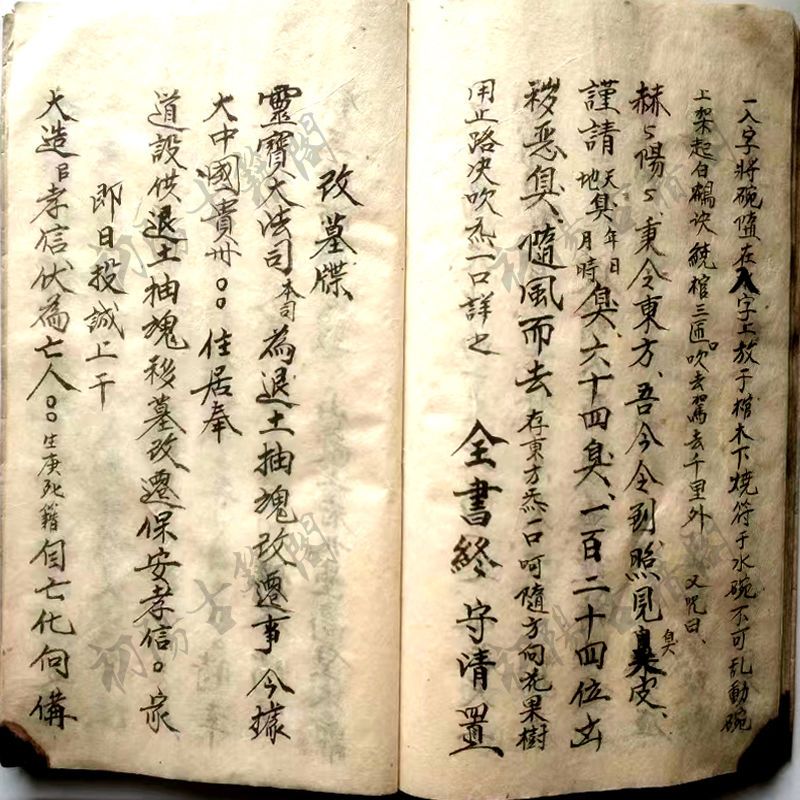 一入字將碗隨在入字上放于棺木下燒符于水碗不可乱動碗
上架起白鶴決繞棺三匝吹去罵去千里外 又咒曰、
赫々陽々、東令東方、吾今令到、照見臭皮、
謹請天地臭年月日時臭、六十四臭、一百二十四位出
移惡臭、隨風而去 存東方炁一口呵隨方向花果樹
用正路決吹炁一口詳之
全書終 守清置
改墓牒
靈寶大法司本司為退土抽塊改遷事 今據
大中國貴州〇〇住居奉
道設供退土抽塊移墓改遷保安孝信〇家
即日投誠上干
大造㠯孝信伏為亡人〇〇生庚死籍自亡化向備
初陽古籍閣
初陽古籍閣
初陽古籍閣
初陽古籍閣